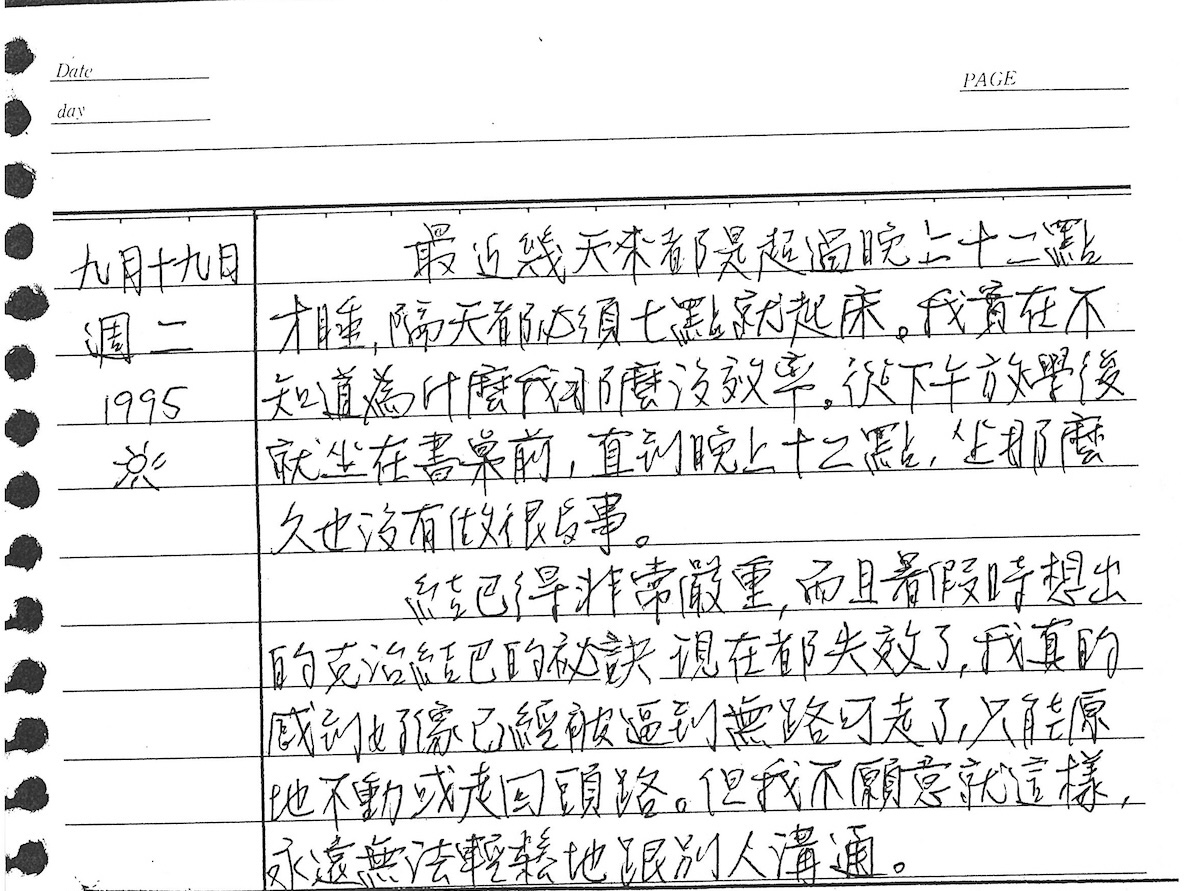 Date
PAGE
day
九月十九日
週二
1995
最近幾天來都是超過晚上十二點
才睡,隔天都必須七點就起床。我實在不
知道為什麼我那麼沒效率。從下午放學後
就坐在書桌前,直到晚上十二點,坐那麼
久也沒有做很多事。
結巴得非常嚴重,而且暑假時想出
的克治結巴的祕訣現在都失效了,我真的
感到好像已經被逼到無路可走了,只能原
地不動或走回頭路。但我不願意就這樣,
永遠無法輕鬆地跟別人溝通。